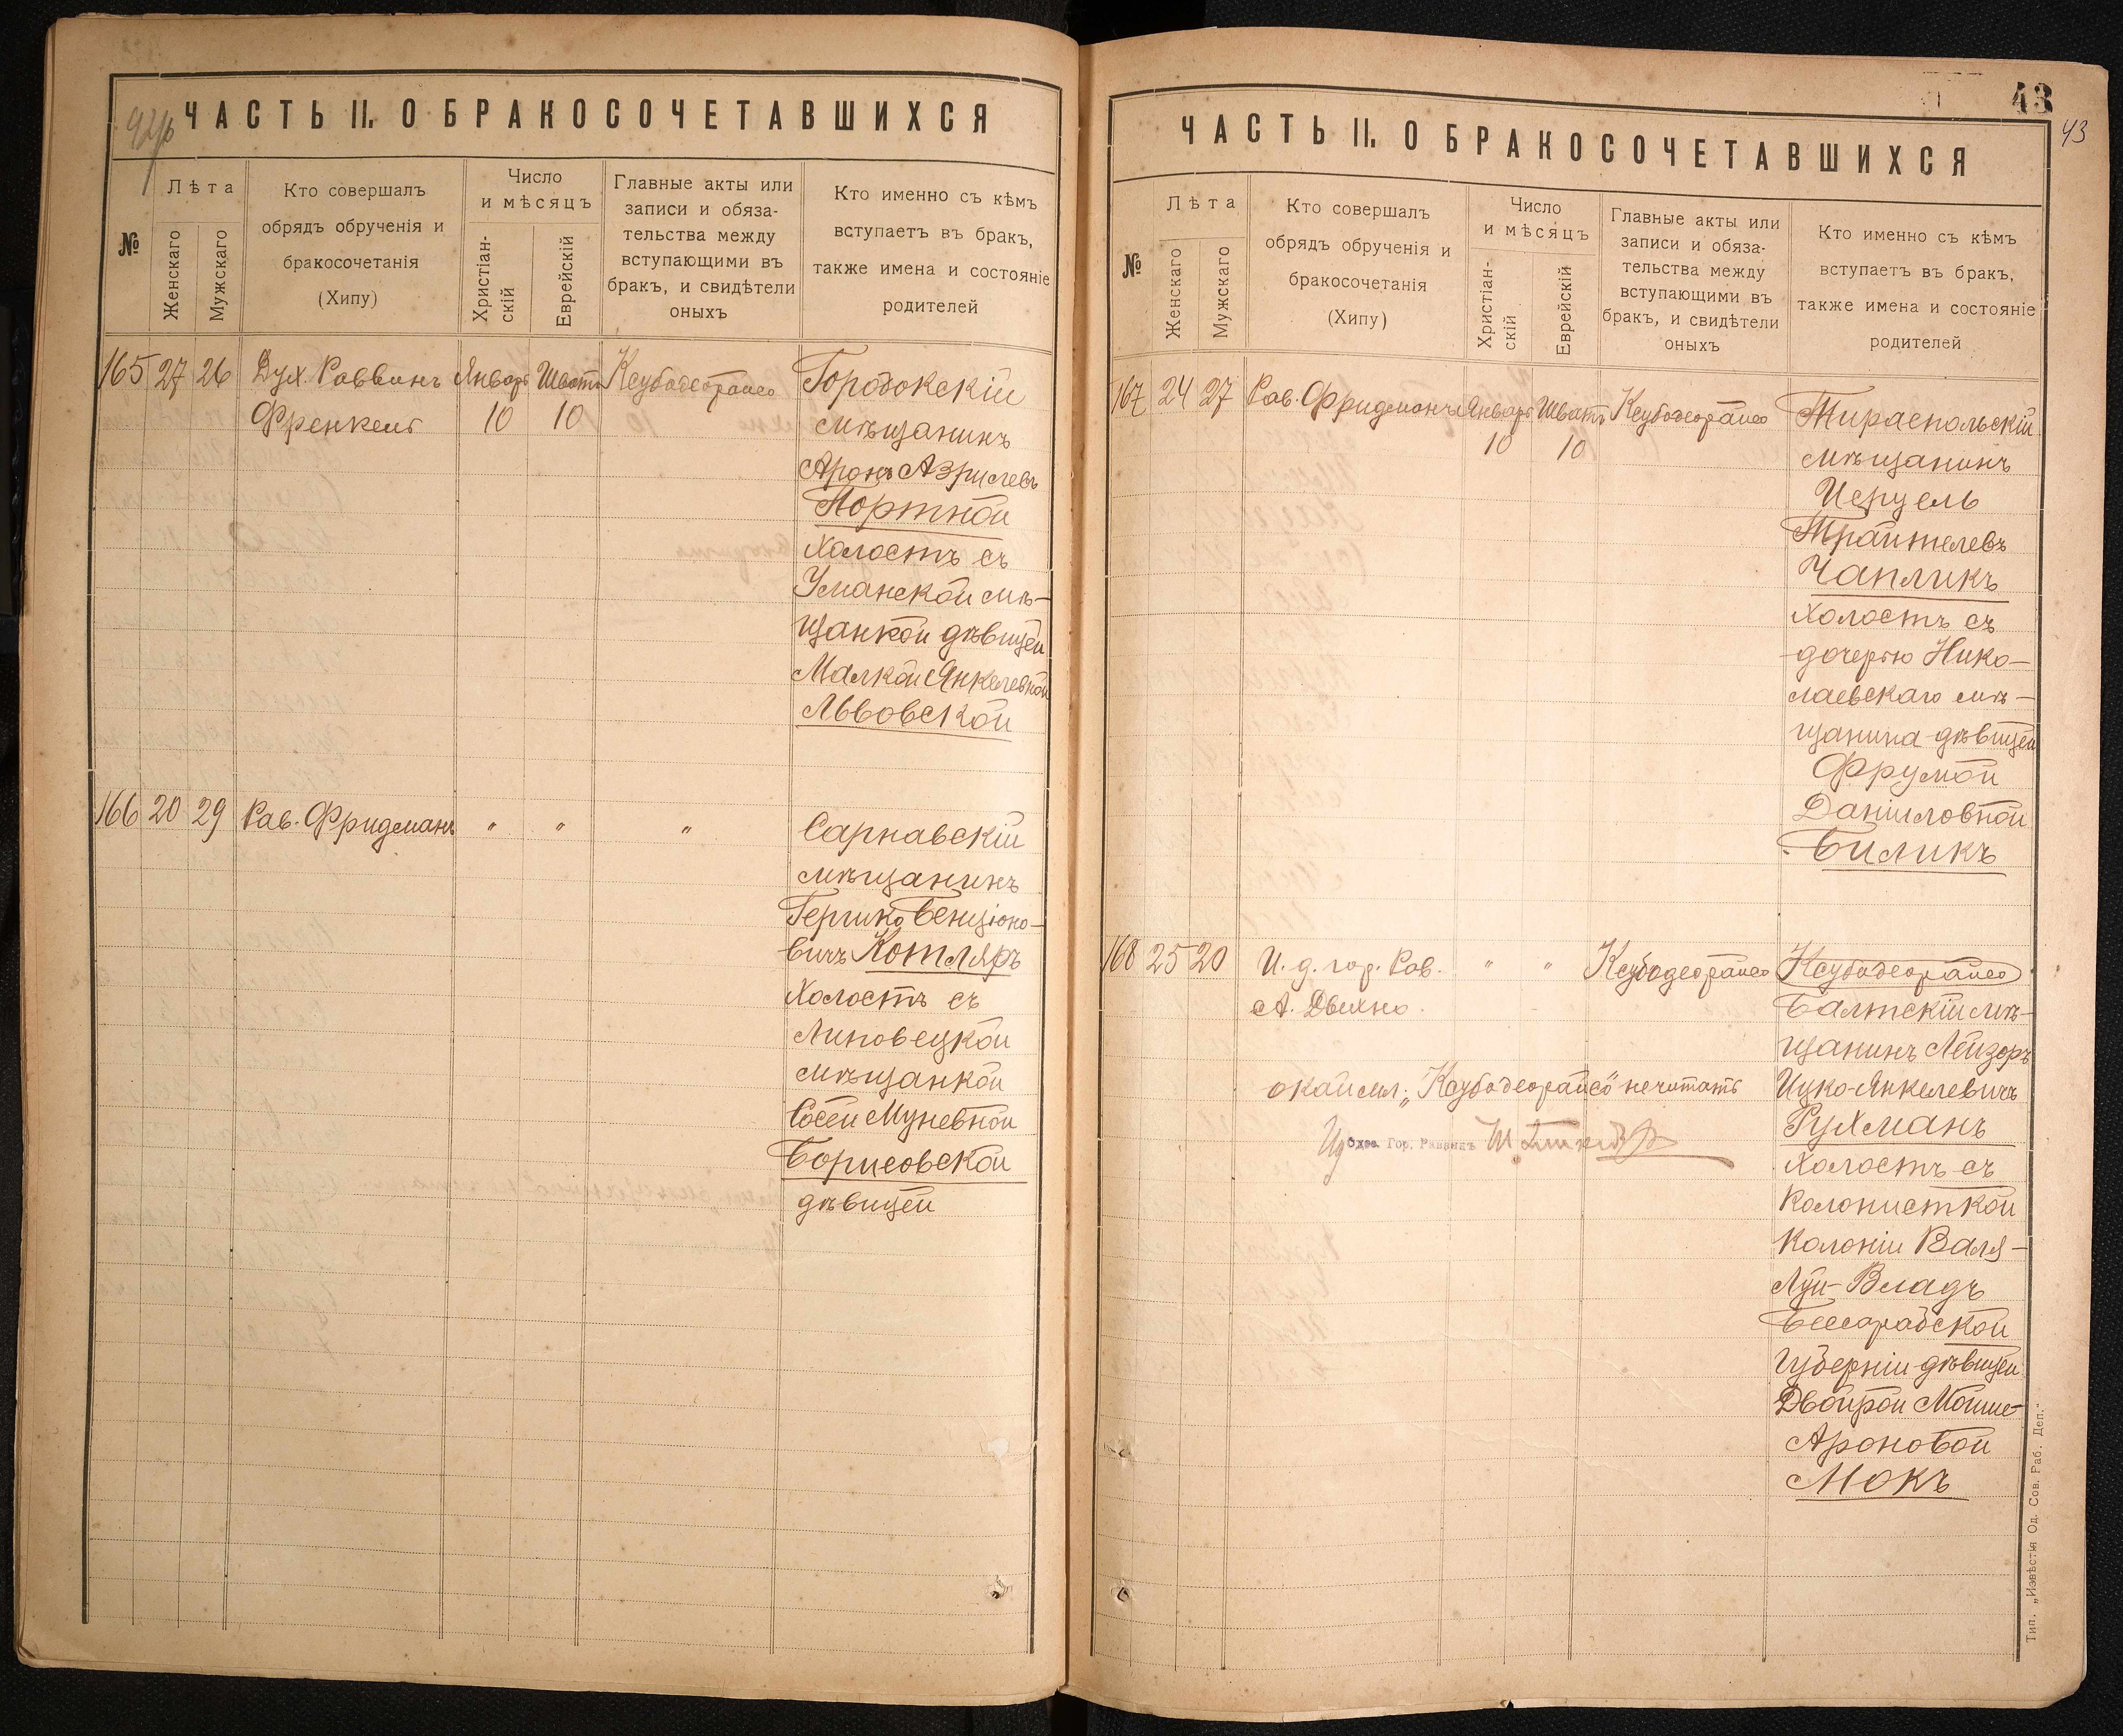 ЧАСТЬ II. О БРАКОСОЧЕТАВШИХСЯ
№
Лѣта
Женскаго
Мужскаго
Кто совершалъ
обрядъ обрученія и
бракосочетанія
(Хипу)
Число
и мѣсяцъ
Христіан-
скій
Еврейскій
Главные акты или
записи и обяза-
тельства между
вступающими въ
бракъ, и свидѣтели
оныхъ
Кто именно съ кѣмъ
вступаетъ въ бракъ,
также имена и состояніе
родителей
165 27 26 Дух. Раввинъ Январь Шватъ Ксубодеорайсо Городокскій
Френкель 10 10 мѣщанинъ
Аронъ Азрилевъ
Портной
холостъ съ
Уманской мѣ-
щанкой дѣвицей
Малкой Янкелевной
Львовской
166 20 29 Рав. Фридманъ " " " Сарнавскій
мѣщанинъ
Гершко Бенціоно-
вичъ Котляръ
холостъ съ
Липовецкой
мѣщанкой
Сосей Муневной
Борисовской
дѣвицей
43
43
ЧАСТЬ II. О БРАКОСОЧЕТАВШИХСЯ
№
Лѣта
Женскаго
Мужскаго
Кто совершалъ
обрядъ обрученія и
бракосочетанія
(Хипу)
Число
и мѣсяцъ
Христіан-
скій
Еврейскій
Главные акты или
записи и обяза-
тельства между
вступающими въ
бракъ, и свидѣтели
оныхъ
Кто именно съ кѣмъ
вступаетъ въ бракъ,
также имена и состояніе
родителей
167 24 27 Рав. Фридманъ Январь Шватъ Ксубодеорайсо Тираспольскій
10 10 мѣщанинъ
Иерцель
Трайтелевъ
Чапликъ
холостъ съ
дочерью Нико-
лаевскаго мѣ-
щанина дѣвицей
Фрумой
Даниловной
Биликъ
168 25 20 И. д. гор. Рав. " " Ксубодеорайсо Ксубодеорайсо
А. Двихно. Балтскій мѣ-
щанинъ Лейзоръ
окаймл. „Ксубодеорайсо" нечитать Ицко-Янкелевичъ
Одес. Гор. Раввинъ Рухманъ
холостъ съ
колонисткой
колоніи Валя-
Луй-Владъ
Бессарабской
губерніи дѣвицей
Двойрой Мойше-
Ароновой
Мокъ
Тип. „Извѣстія Од. Сов. Раб. Деп."